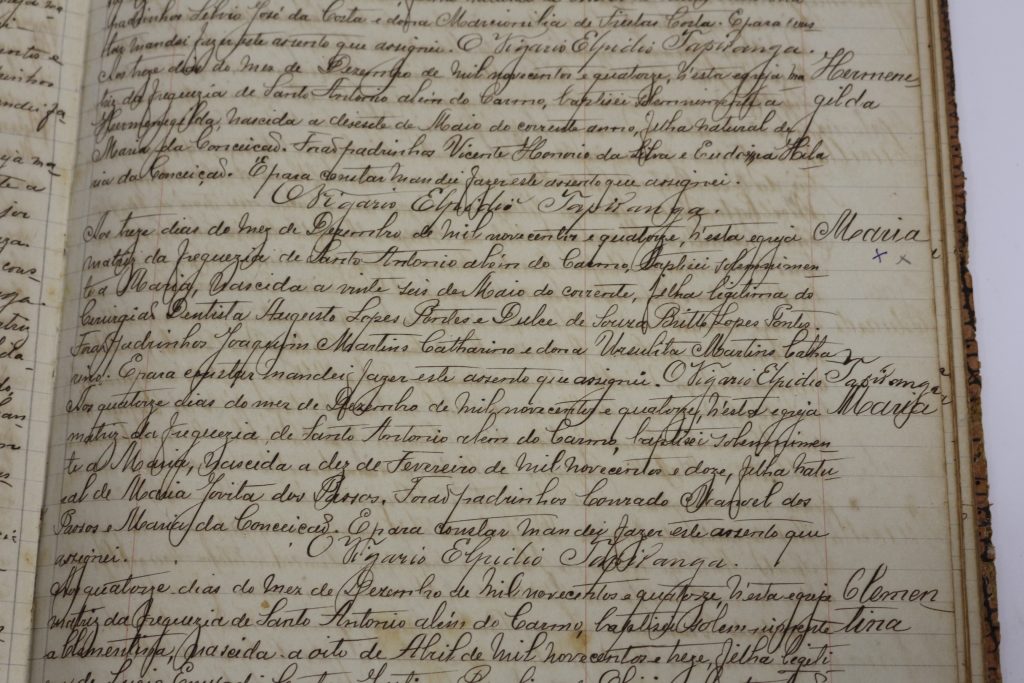 padrinhos Silvio José da Costa e dona Marcionilia de Freitas Costa. E para cons
tar mandei fazer este assento que assignei. O Vigario Elpidio Tapiranga.
Aos treze dias do mez de Dezembro de mil novecentos e quatorze, n'esta egreja ma Hermene
triz da freguezia de Santo Antonio além do Carmo, baptisei solemnimente a gilda
Hermenegilda, nascida a desesete de Maio do corrente anno, filha natural de
Maria da Conceição. Forão padrinhos Vicente Honorio da Silva e Eudoxia Hila
ria da Conceição. E para constar mandei fazer este assento que assignei.
O Vigario Elpidio Tapiranga.
Aos treze dias do mez de Dezembro de mil novecentos e quatorze, n'esta egreja Maria
matriz da freguezia de Santo Antonio além do Carmo, baptisei solemnimen x x
te a Maria, nascida a vinte seis de Maio do corrente, filha legitima do
Cirurgião Dentista Augusto Lopes Pontes e Dulce de Souza Britto Lopes Pontes.
Forão padrinhos Joaquim Martins Catharino e dona Ursulita Martins Catha
rino. E para constar mandei fazer este assento que assignei. O Vigario Elpidio Tapiranga
Aos quatorze dias do mez de Dezembro de mil novecentos e quatorze, n'esta egreja Maria
matriz da freguezia de Santo Antonio além do Carmo, baptisei solemnimen
te a Maria, nascida a dez de Fevereiro de mil novecentos e doze, filha natu
ral de Maria Jovita dos Passos. Forão padrinhos Conrado Manoel dos
Passos e Maria da Conceição. E para constar mandei fazer este assento que
assignei. O Vigario Elpidio Tapiranga.
Aos quatorze dias do mez de Dezembro de mil novecentos e quatorze, n'esta egreja Clemen
matriz da freguezia de Santo Antonio além do Carmo, baptisei solemnimente tina
a Clementina, nascida a oito de Abril de mil novecentos e treze, filha legiti